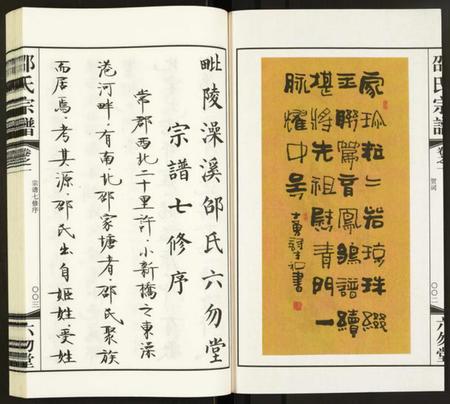 邵氏宗譜
卷之一
賀詞
〇〇二
六勿堂
家珍粒二若琼珠綴
玉聯篇育鳳鵷譜續
堪將先祖慰青門一
脉耀中吴
書
毗陵澡溪邵氏六勿堂
宗譜七修序
常郡西北二十里許·小新橋之東澡
港河畔·有南北邵家塘者邵氏聚族
而居焉·考其源·邵氏出自姬姓受姓
邵氏宗譜
卷之一
宗譜七修序
〇〇三
六勿堂